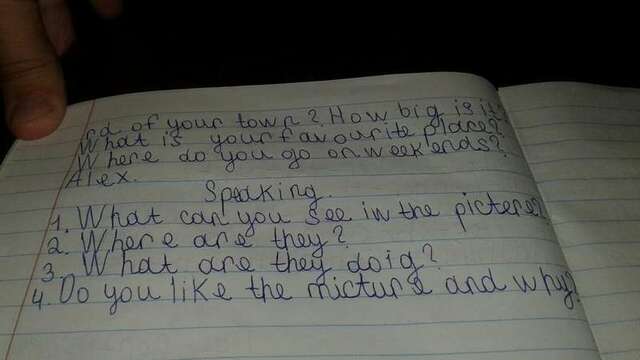 rd of your town? How big is it?
What is your favourite place?
Where do you go on weekends?
Alex.
Speaking.
1. What can you see in the pictere?
2. Where are they?
3. What are they doig?
4. Do you like the micture and why?